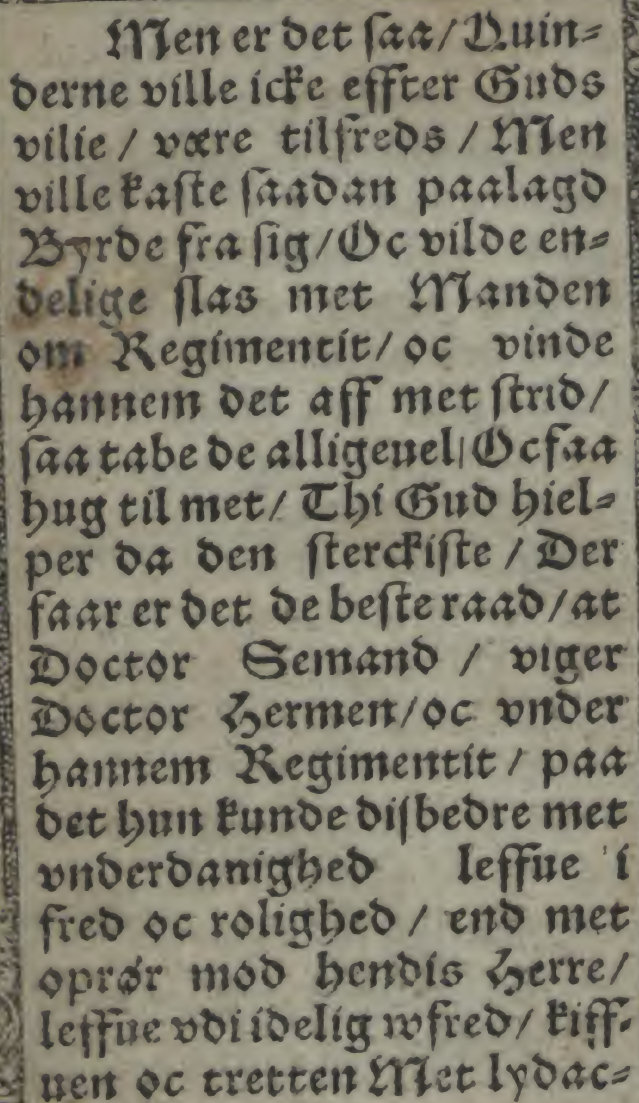 Men er det saa/ Quin⸗
derne ville icke effter Guds
vilie / være tilfreds / Men
ville kaste saadan paalagd
Byrde fra sig/ Oc vilde en⸗
delige slas met Manden
om Regimentit/ oc vinde
hannem det aff met strid/
saa tabe de alligeuel/ Oc faa
hug til met/ Thi Gud hiel⸗
per da den sterckiste / Der
faar er det de beste raad/ at
Doctor Semand / viger
Doctor Hermen/ oc vnder
hannem Regimentit / paa
det hun kunde disbedre met
vnderdanighed leffue i
fred oc rolighed / end met
oprør mod hendis Herre/
leffue vdi idelig wfred/ kiff⸗
uen oc tretten Met lydac⸗